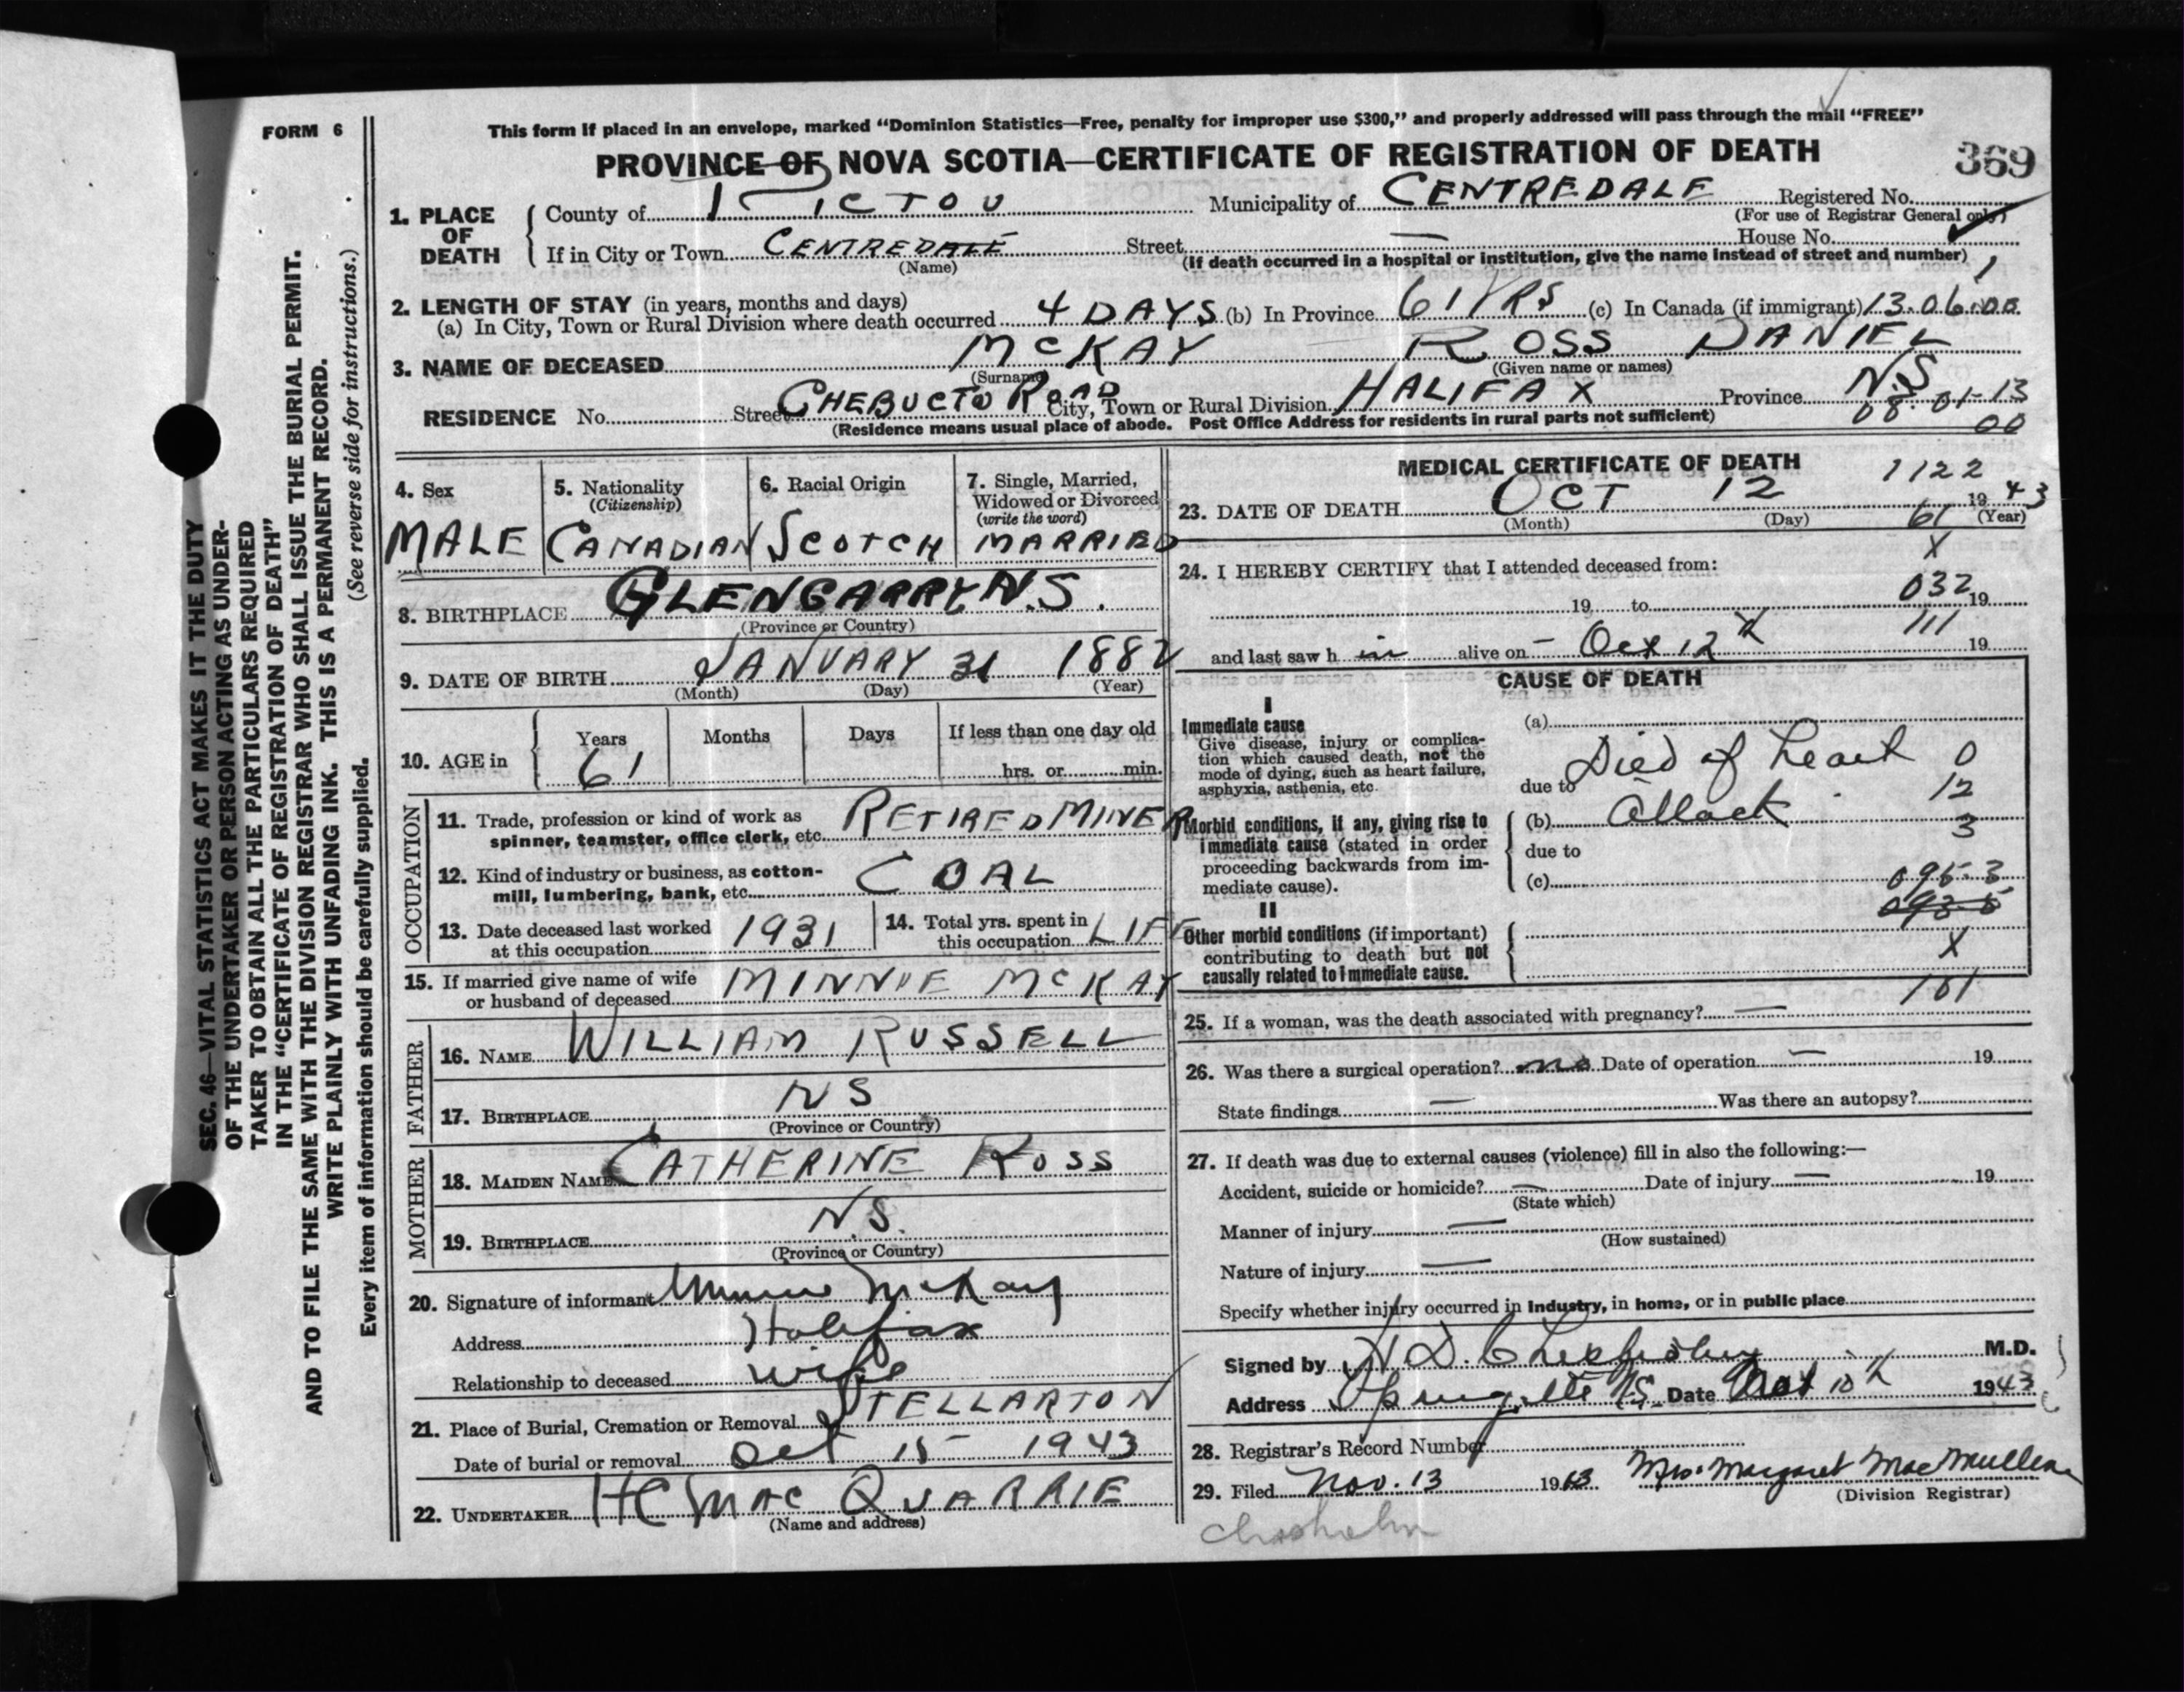 FORM 6
This form if placed in an envelope, marked “Dominion Statistics—Free, penalty for improper use $300,” and properly addressed will pass through the mail “FREE”
PROVINCE OF NOVA SCOTIA—CERTIFICATE OF REGISTRATION OF DEATH
369
1. PLACE OF DEATH
County of PICTOU Municipality of CENTREDALE Registered No.
(For use of Registrar General only)
If in City or Town CENTREDALE Street — House No.
(Name) (If death occurred in a hospital or institution, give the name instead of street and number) 1
2. LENGTH OF STAY (in years, months and days)
(a) In City, Town or Rural Division where death occurred 4 DAYS (b) In Province 61 YRS (c) In Canada (if immigrant) 13.06.00
3. NAME OF DECEASED McKAY ROSS DANIEL
(Surname) (Given name or names)
RESIDENCE No. Street CHEBUCTO ROAD City, Town or Rural Division HALIFAX Province N.S
08-01-13
(Residence means usual place of abode. Post Office Address for residents in rural parts not sufficient) 00
4. Sex
MALE
5. Nationality
(Citizenship)
CANADIAN
6. Racial Origin
SCOTCH
7. Single, Married,
Widowed or Divorced
(write the word)
MARRIED
8. BIRTHPLACE GLENGARRY N.S.
(Province or Country)
9. DATE OF BIRTH JANUARY 31 1882
(Month) (Day) (Year)
10. AGE in
Years Months Days If less than one day old
61 hrs. or min.
OCCUPATION
11. Trade, profession or kind of work as
spinner, teamster, office clerk, etc. RETIRED MINER
12. Kind of industry or business, as cotton-
mill, lumbering, bank, etc. COAL
13. Date deceased last worked
at this occupation 1931
14. Total yrs. spent in
this occupation LIFE
15. If married give name of wife
or husband of deceased MINNIE McKAY
FATHER
16. NAME WILLIAM RUSSELL
17. BIRTHPLACE NS
(Province or Country)
MOTHER
18. MAIDEN NAME CATHERINE ROSS
19. BIRTHPLACE N.S.
(Province or Country)
20. Signature of informant Minnie McKay
Address Halifax
Relationship to deceased wife
21. Place of Burial, Cremation or Removal STELLARTON
Date of burial or removal Oct 15 1943
22. UNDERTAKER HC MAC QUARRIE
(Name and address)
MEDICAL CERTIFICATE OF DEATH 1122
23. DATE OF DEATH OCT 12 1943
(Month) (Day) (Year)
61
X
24. I HEREBY CERTIFY that I attended deceased from:
032
19 to 19
111
and last saw h im alive on – Oct 12th 19
CAUSE OF DEATH
I
Immediate cause
Give disease, injury or complica-
tion which caused death, not the
mode of dying, such as heart failure,
asphyxia, asthenia, etc.
(a)
Died of heart 0
due to
12
Morbid conditions, if any, giving rise to
immediate cause (stated in order
proceeding backwards from im-
mediate cause).
(b) attack 3
due to
(c) 095-3
093-5
II
Other morbid conditions (if important)
contributing to death but not
causally related to immediate cause.
X
101
25. If a woman, was the death associated with pregnancy? —
26. Was there a surgical operation? no Date of operation — 19
State findings — Was there an autopsy?
27. If death was due to external causes (violence) fill in also the following:—
Accident, suicide or homicide? — Date of injury — 19
(State which)
Manner of injury —
(How sustained)
Nature of injury —
Specify whether injury occurred in industry, in home, or in public place
Signed by H D. Chisholm M.D.
Address Springville NS. Date 10th 1943
28. Registrar's Record Number
29. Filed Nov. 13 1943 Mrs. Margaret MacMullen
(Division Registrar)
Chisholm
SEC. 46—VITAL STATISTICS ACT MAKES IT THE DUTY
OF THE UNDERTAKER OR PERSON ACTING AS UNDER-
TAKER TO OBTAIN ALL THE PARTICULARS REQUIRED
IN THE “CERTIFICATE OF REGISTRATION OF DEATH”
AND TO FILE THE SAME WITH THE DIVISION REGISTRAR WHO SHALL ISSUE THE BURIAL PERMIT.
WRITE PLAINLY WITH UNFADING INK. THIS IS A PERMANENT RECORD.
Every item of information should be carefully supplied. (See reverse side for instructions.)